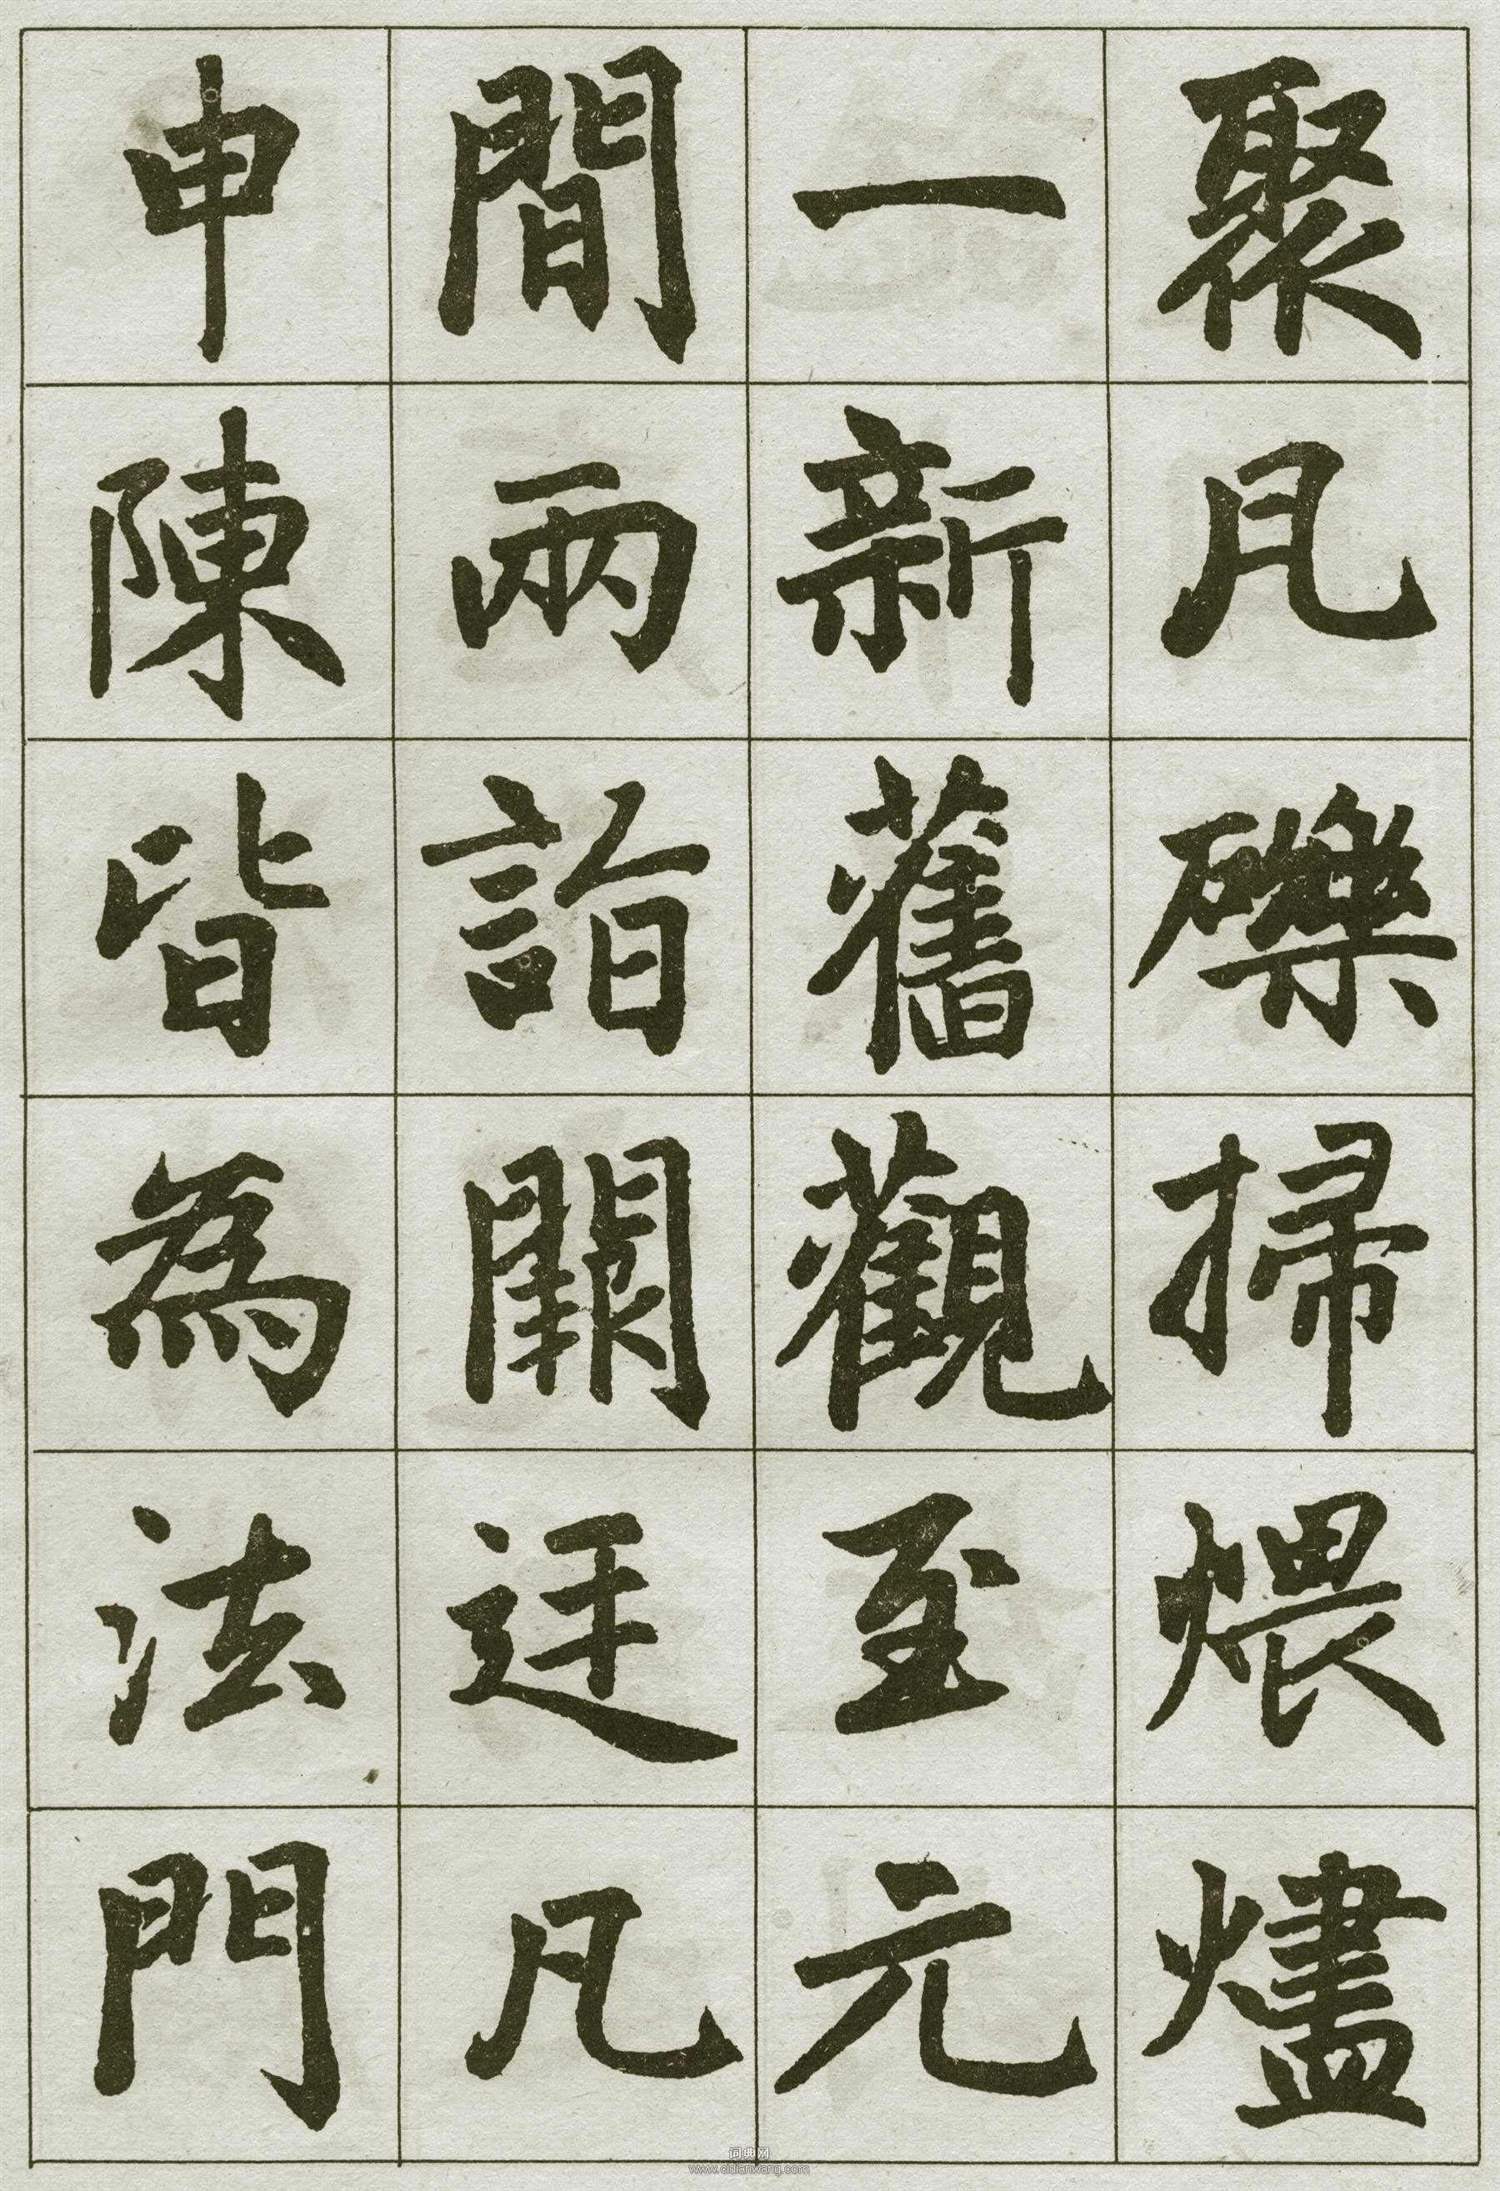 聚凡礫掃煨燼
一新舊觀至元
間兩詣闕廷凡
申陳皆為法門
词典网
www.cidianwang.com